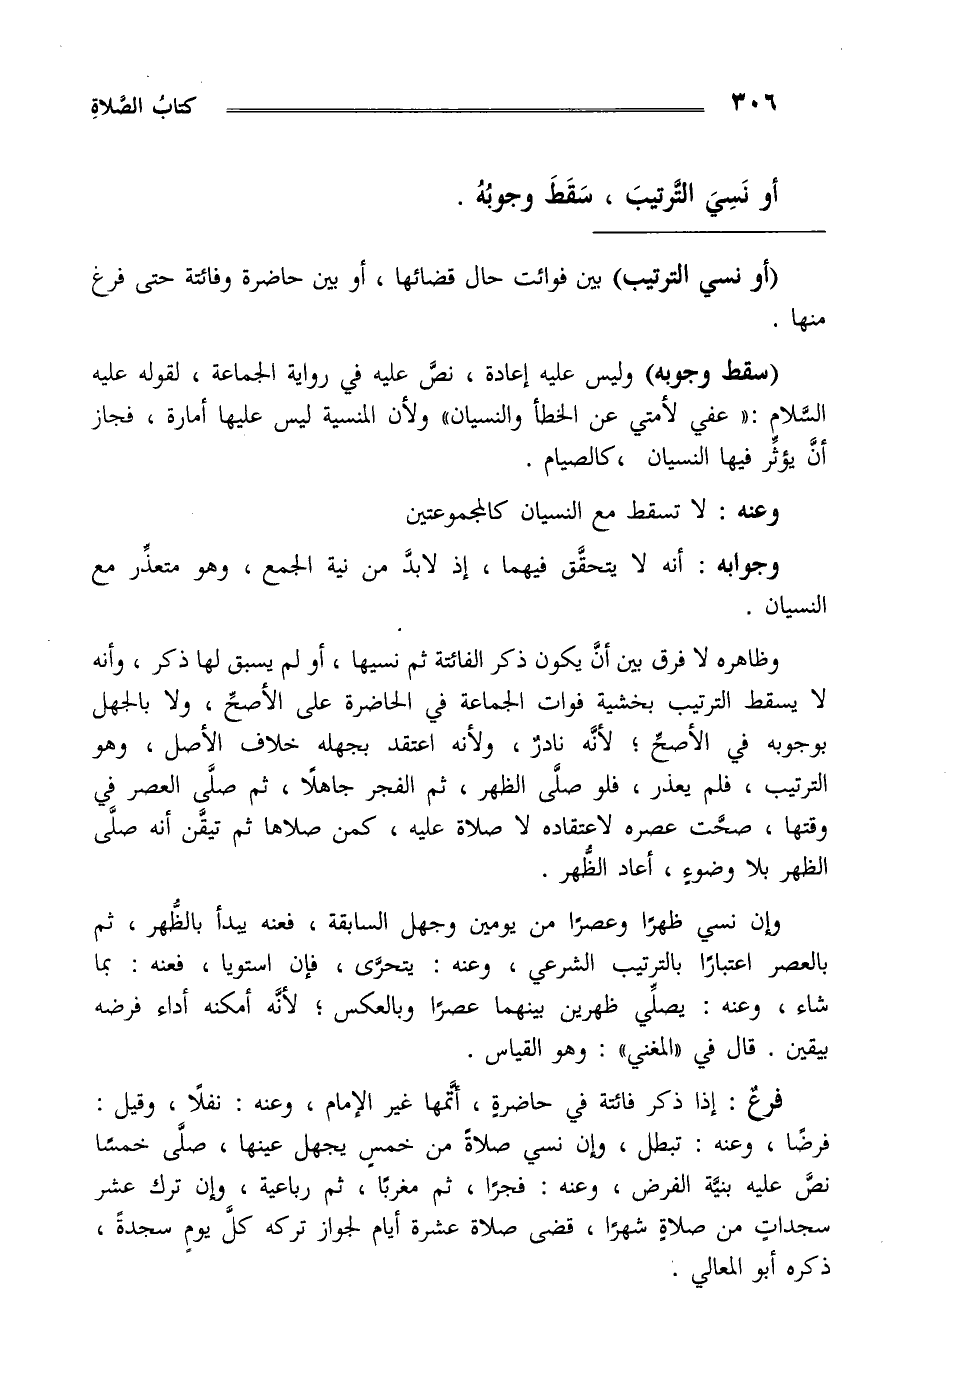 ٣٠٦ كتابُ الصَّلاةِ
أو نَسِيَ التَّرتيبَ ، سَقَطَ وجوبُهُ .
(أو نسي الترتيب) بين فوائت حال قضائها ، أو بين حاضرة وفائتة حتى فرغ
منها .
(سقط وجوبه) وليس عليه إعادة ، نصَّ عليه في رواية الجماعة ، لقوله عليه
السَّلام :« عفي لأمتي عن الخطأ والنسيان» ولأن المنسية ليس عليها أمارة ، فجاز
أنَّ يؤثِّر فيها النسيان ،كالصيام .
وعنه : لا تسقط مع النسيان كالمجموعتين
وجوابه : أنه لا يتحقَّق فيهما ، إذ لابدَّ من نية الجمع ، وهو متعذِّر مع
النسيان .
وظاهره لا فرق بين أنَّ يكون ذكر الفائتة ثم نسيها ، أو لم يسبق لها ذكر ، وأنه
لا يسقط الترتيب بخشية فوات الجماعة في الحاضرة على الأصحِّ ، ولا بالجهل
بوجوبه في الأصحِّ ؛ لأنَّه نادرٌ ، ولأنه اعتقد بجهله خلاف الأصل ، وهو
الترتيب ، فلم يعذر ، فلو صلَّى الظهر ، ثم الفجر جاهلًا ، ثم صلَّى العصر في
وقتها ، صحَّت عصره لاعتقاده لا صلاة عليه ، كمن صلاها ثم تيقَّن أنه صلَّى
الظهر بلا وضوءٍ ، أعاد الظُّهر .
وإن نسي ظهرًا وعصرًا من يومين وجهل السابقة ، فعنه يبدأ بالظُّهر ، ثم
بالعصر اعتبارًا بالترتيب الشرعي ، وعنه : يتحرَّى ، فإن استويا ، فعنه : بما
شاء ، وعنه : يصلِّي ظهرين بينهما عصرًا وبالعكس ؛ لأنَّه أمكنه أداء فرضه
بيقين . قال في «المغني» : وهو القياس .
فرعٌ : إذا ذكر فائتة في حاضرةٍ ، أتَّمها غير الإمام ، وعنه : نفلًا ، وقيل :
فرضًا ، وعنه : تبطل ، وإن نسي صلاةً من خمسٍ يجهل عينها ، صلَّى خمسًا
نصَّ عليه بنيَّة الفرض ، وعنه : فجرًا ، ثم مغربًا ، ثم رباعية ، وإن ترك عشر
سجداتٍ من صلاةٍ شهرًا ، قضى صلاة عشرة أيام لجواز تركه كلَّ يومٍ سجدةً ،
ذكره أبو المعالي .